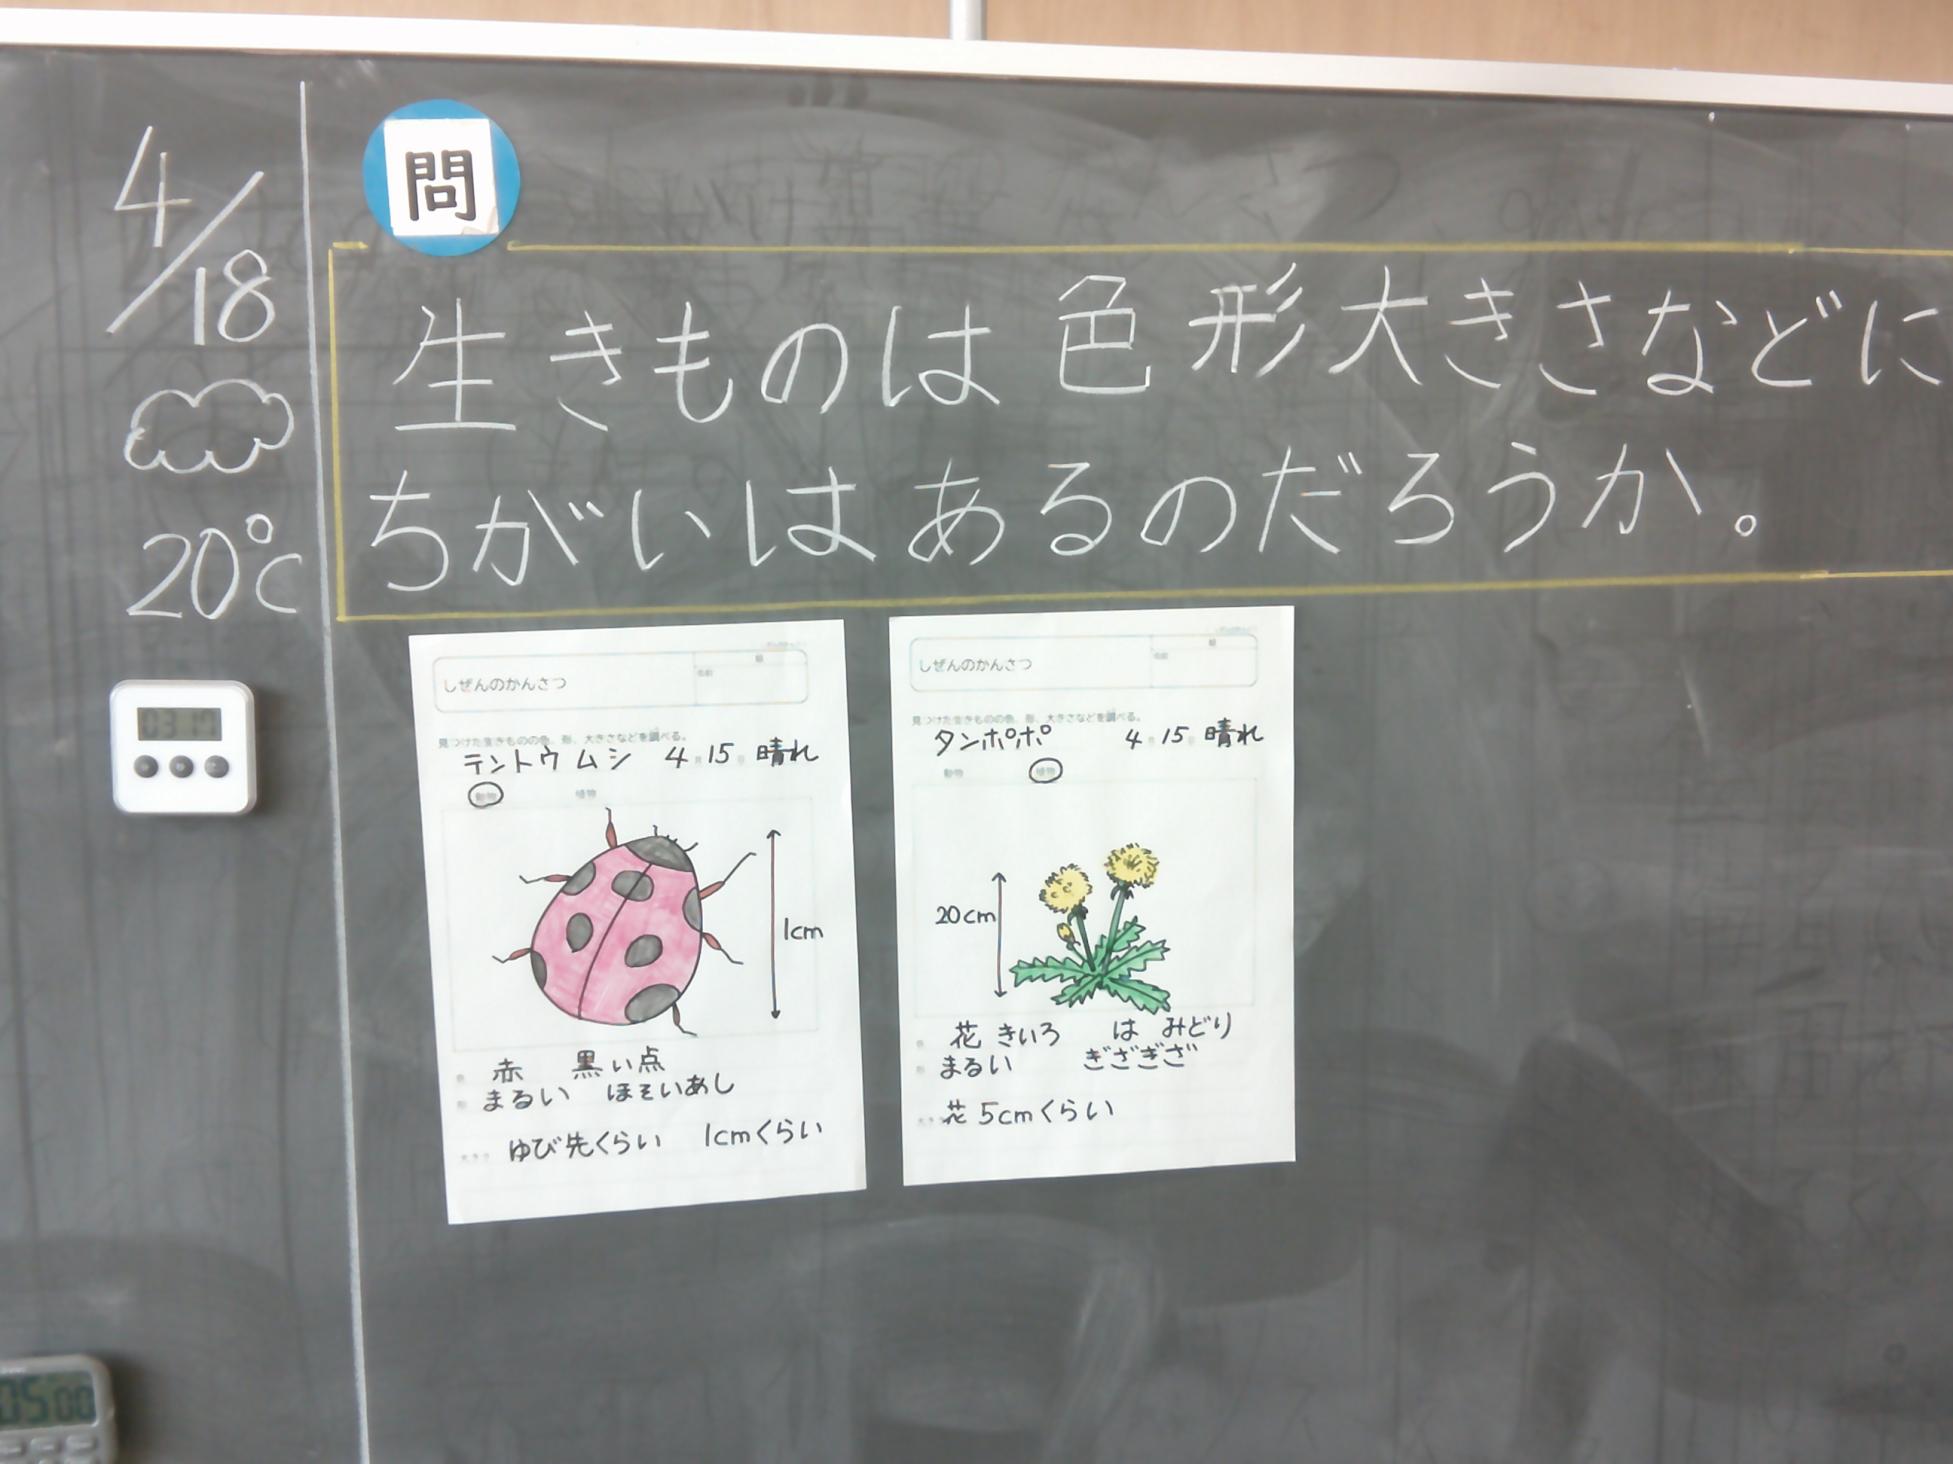 4/18
20℃
03 17
05 00
問
生きものは色形大きさなどに
ちがいはあるのだろうか。
しぜんのかんさつ
見つけた生きものの色、形、大きさなどを調べる。
テントウムシ 4月15日 晴れ
動物 植物
1cm
赤 黒い点
まるい ほそいあし
ゆび先くらい 1cmくらい
しぜんのかんさつ
見つけた生きものの色、形、大きさなどを調べる。
タンポポ 4月15日 晴れ
動物 植物
20cm
花 きいろ は みどり
まるい ぎざぎざ
花 5cmくらい